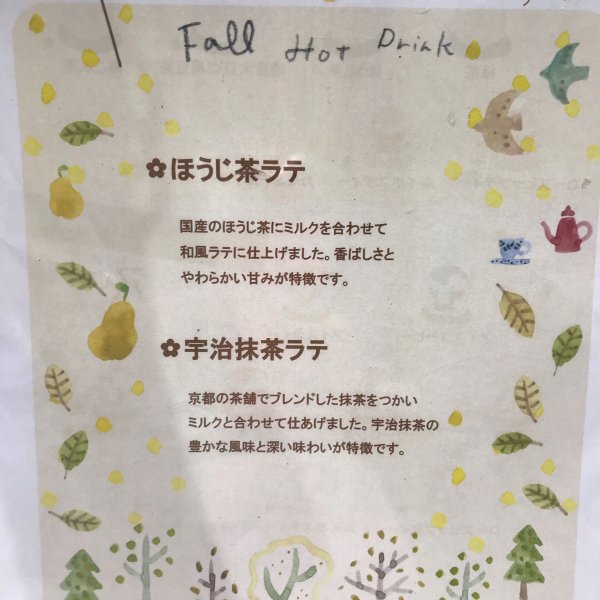 Fall Hot Drink
✿ほうじ茶ラテ
国産のほうじ茶にミルクを合わせて
和風ラテに仕上げました。香ばしさと
やわらかい甘みが特徴です。
✿宇治抹茶ラテ
京都の茶舗でブレンドした抹茶をつかい
ミルクと合わせて仕あげました。宇治抹茶の
豊かな風味と深い味わいが特徴です。